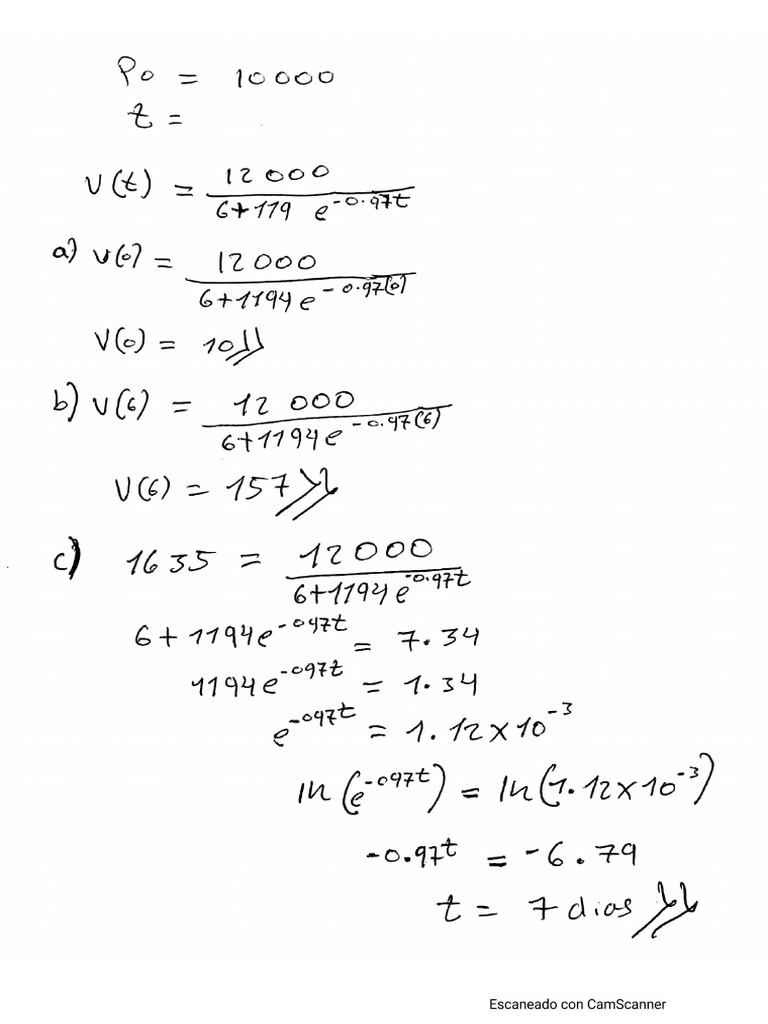 P0 = 10000
t =
V(t) = 12 000 / 6+119 e^-0.97t
a) V(0) = 12000 / 6+1194e^-0.97(0)
V(0) = 10
b) V(6) = 12 000 / 6+1194e^-0.97(6)
V(6) = 157
c) 1635 = 12000 / 6+1194e^-0.97t
6+1194e^-097t = 7.34
1194e^-097t = 1.34
e^-097t = 1.12×10^-3
ln(e^-097t) = ln(1.12×10^-3)
-0.97t = -6.79
t = 7 dias
Escaneado con CamScanner